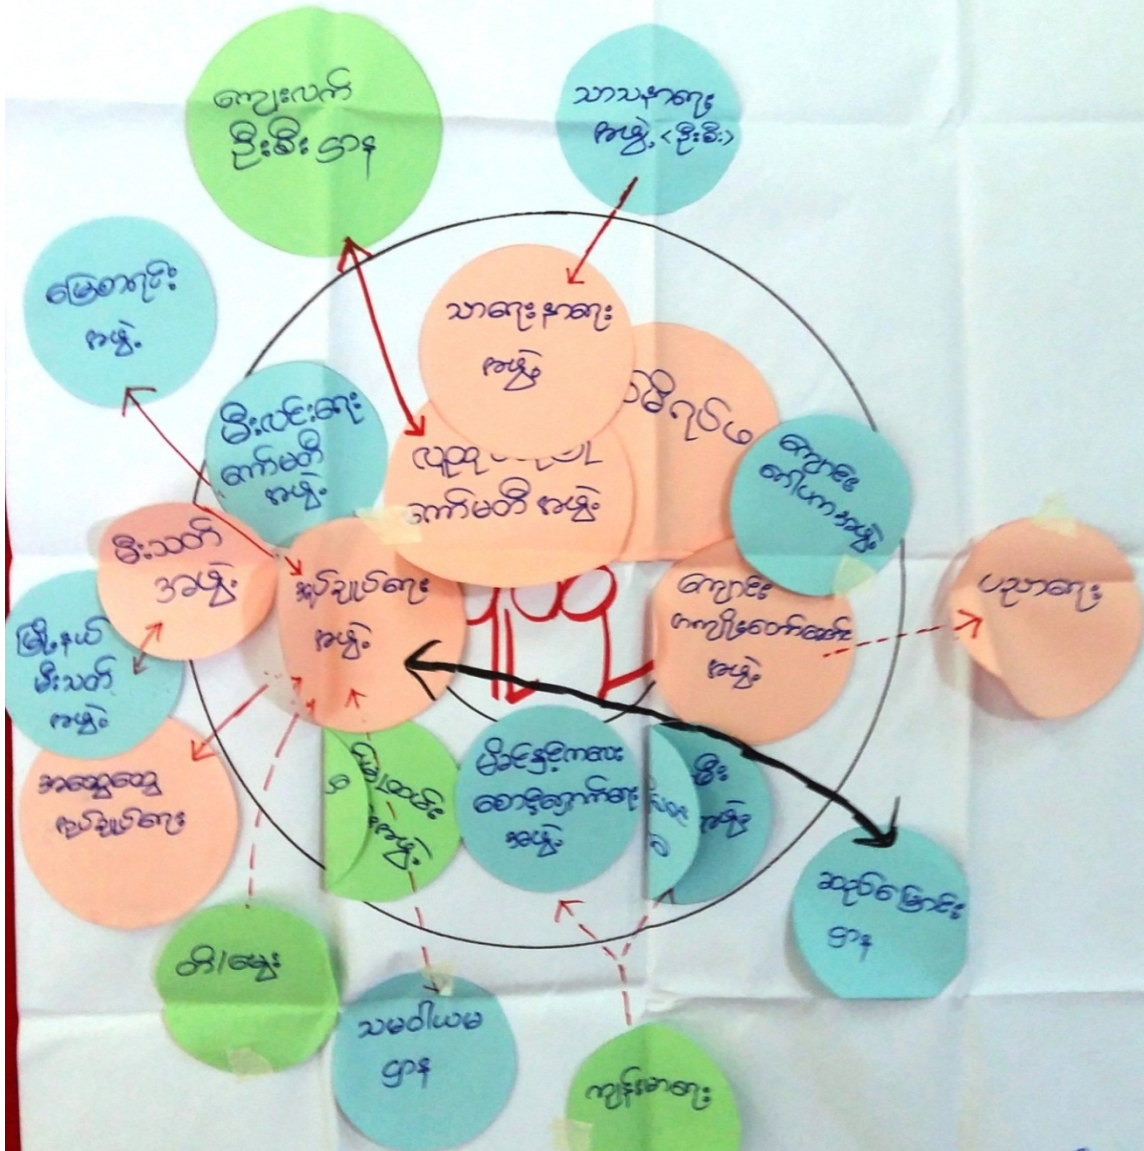 ကျေးလက်
ဦးစီးဌာန
သာသနာရေး
အဖွဲ့ (ဦးစီး)
မြေစာရင်း
အဖွဲ့
သာရေးနာရေး
အဖွဲ့
မီးလင်းရေး
ကော်မတီ
အဖွဲ့
ကော်မတီ အဖွဲ့
ကျောင်း
အဖွဲ့
မီးသတ်
အဖွဲ့
အုပ်ချုပ်ရေး
အဖွဲ့
ကျောင်း
အဖွဲ့
ပညာရေး
မြို့နယ်
မီးသတ်
အဖွဲ့
အထွေထွေ
အုပ်ချုပ်ရေး
မိခင်နှင့်ကလေး
စောင့်ရှောက်ရေး
အဖွဲ့
မီး
အဖွဲ့
ဆည်မြောင်း
ဌာန
တိ/မွေး
သမဝါယမ
ဌာန
ကျန်းမာရေး